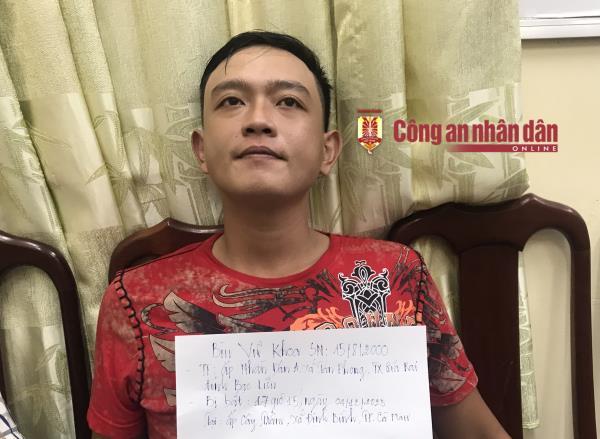 Công an nhân dân
ONLINE
Bùi Vũ Khoa SN: 15/8/2000
- Tt: ấp Nhàn Dân A, xã Tân Phong, TX Giá Rai
tỉnh Bạc Liêu
- Bị bắt: 17 giờ 15, ngày
Tại: ấp Cây Trâm, xã Định Bình, TP. Cà Mau